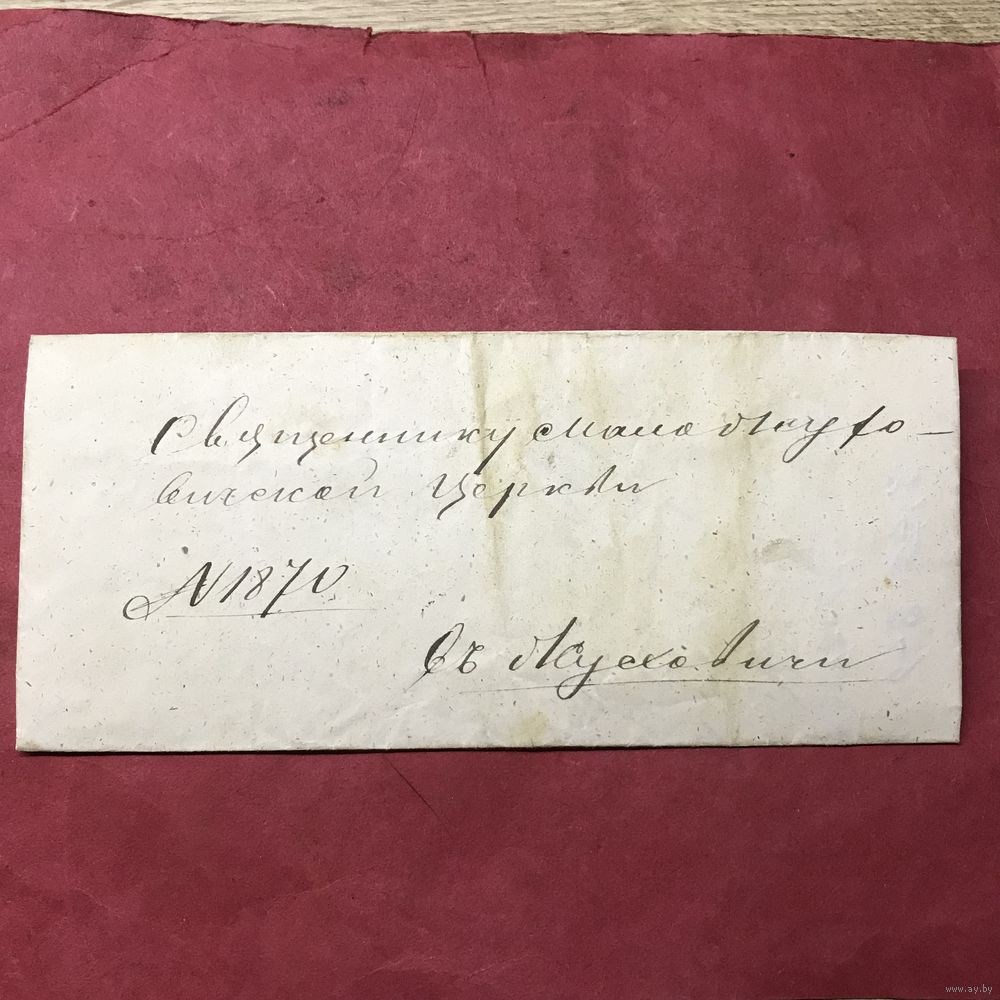 Священнику Мало Жухо-
вичской Церкви
N 1870
Въ Жуховичи
www.ay.by